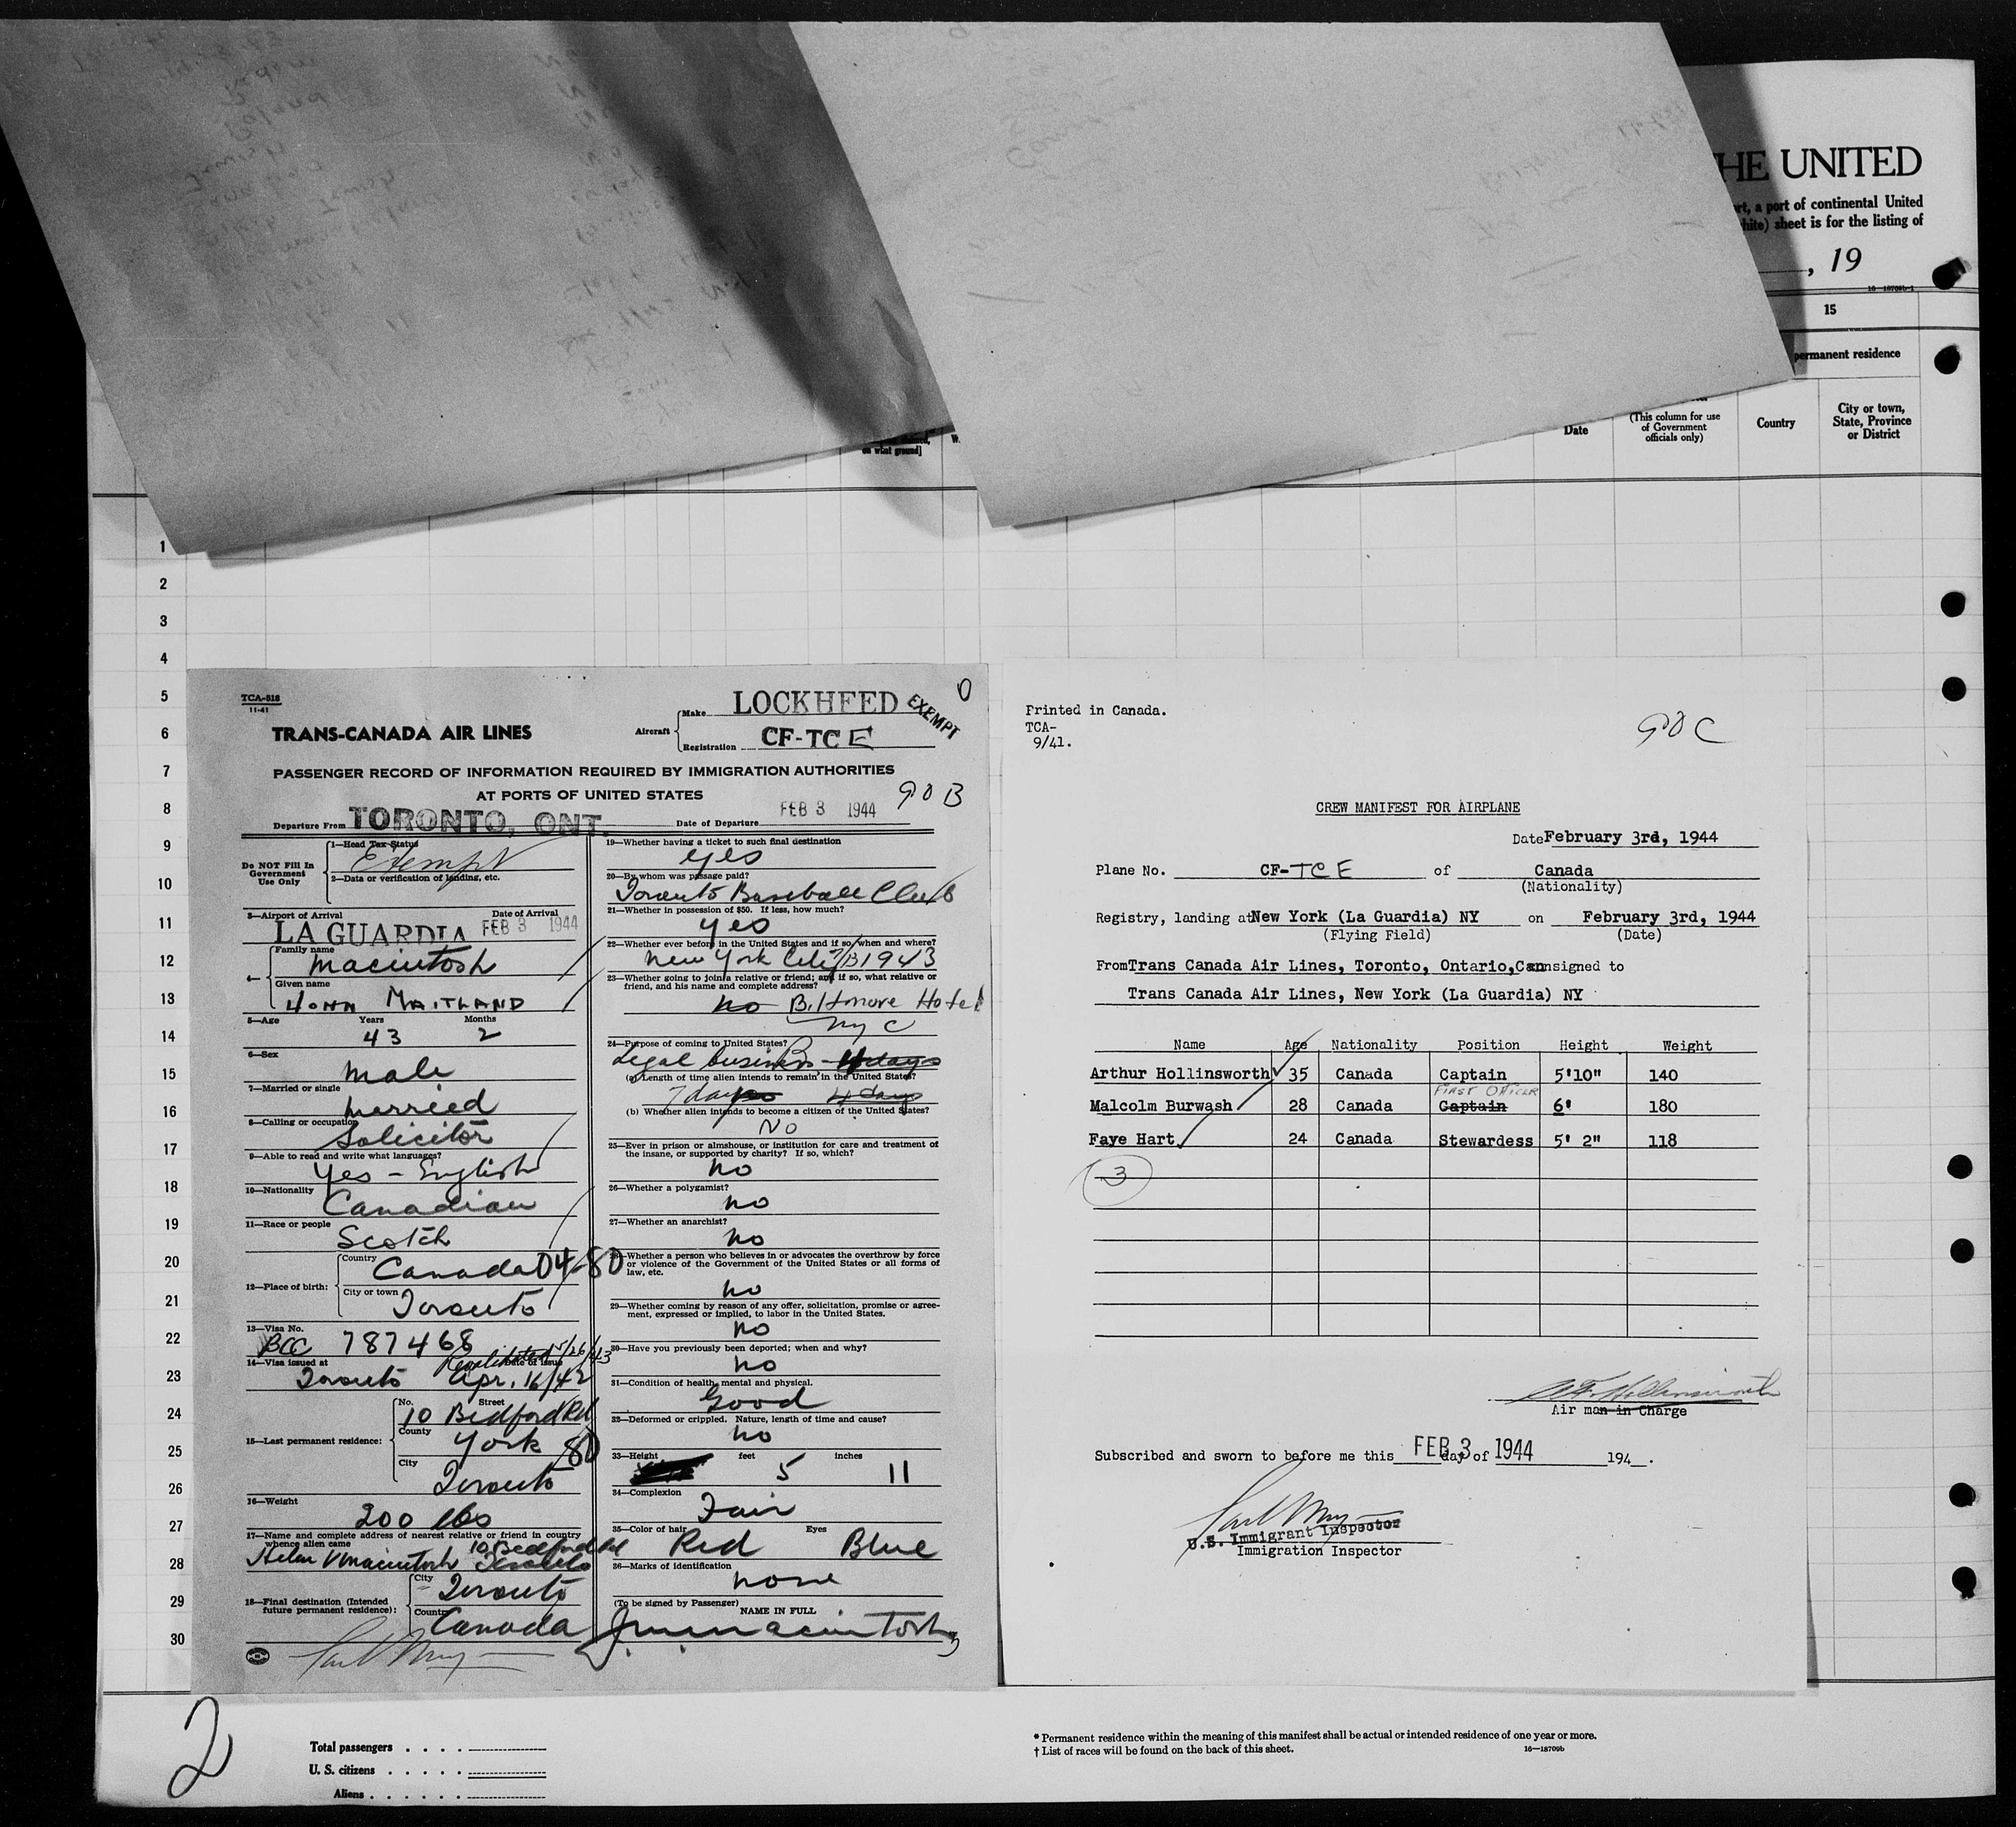 HE UNITED
rt, a port of continental United
hite) sheet is for the listing of
, 19
16—18709b-1
15
permanent residence
on what ground]
W.
Date
(This column for use
of Government
officials only)
Country
City or town,
State, Province
or District
1
2
3
4
5
6
7
8
9
10
11
12
13
14
15
16
17
18
19
20
21
22
23
24
25
26
27
28
29
30
TCA-518
11-41
TRANS-CANADA AIR LINES
Aircraft
Make LOCKHEED
EXEMPT
0
Registration CF-TCE
PASSENGER RECORD OF INFORMATION REQUIRED BY IMMIGRATION AUTHORITIES
AT PORTS OF UNITED STATES
90B
Departure From TORONTO, ONT. Date of Departure FEB 3 1944
Do NOT Fill In
Government
Use Only
1—Head Tax Status
Exempt
2—Data or verification of landing, etc.
3—Airport of Arrival Date of Arrival
LA GUARDIA FEB 3 1944
4—
Family name
Macintosh
Given name
JOHN MAITLAND
5—Age Years Months
43 2
6—Sex
male
7—Married or single
Married
8—Calling or occupation
Solicitor
9—Able to read and write what languages?
Yes - English
10—Nationality
Canadian
11—Race or people
Scotch
12—Place of birth:
Country
Canada 04-80
City or town
Toronto
13—Visa No.
BCC 787468
Revalidated 5/26/43
14—Visa issued at Date of issue
Toronto Apr. 16/42
15—Last permanent residence:
No. Street
10 Bedford Rd
County
York 80
City
Toronto
16—Weight
200 lbs
17—Name and complete address of nearest relative or friend in country
whence alien came
10 Bedford Rd
Helen V Macintosh Toronto
18—Final destination (Intended
future permanent residence):
City
Toronto
Country
Canada
19—Whether having a ticket to such final destination
yes
20—By whom was passage paid?
Toronto Baseball Club
21—Whether in possession of $50. If less, how much?
yes
22—Whether ever before in the United States and if so, when and where?
New York City 1943
23—Whether going to join a relative or friend; and if so, what relative or
friend, and his name and complete address?
no Biltmore Hotel
NYC
24—Purpose of coming to United States?
Legal business - 4 days
(a) Length of time alien intends to remain in the United States?
7 days 4 days
(b) Whether alien intends to become a citizen of the United States?
NO
25—Ever in prison or almshouse, or institution for care and treatment of
the insane, or supported by charity? If so, which?
no
26—Whether a polygamist?
no
27—Whether an anarchist?
no
28—Whether a person who believes in or advocates the overthrow by force
or violence of the Government of the United States or all forms of
law, etc.
no
29—Whether coming by reason of any offer, solicitation, promise or agree-
ment, expressed or implied, to labor in the United States.
no
30—Have you previously been deported; when and why?
no
31—Condition of health, mental and physical.
Good
32—Deformed or crippled. Nature, length of time and cause?
no
33—Height feet inches
5 11
34—Complexion
Fair
35—Color of hair Eyes
Red Blue
36—Marks of identification
none
(To be signed by Passenger)
NAME IN FULL
J. M. Macintosh
Printed in Canada.
TCA-
9/41.
90C
CREW MANIFEST FOR AIRPLANE
Date February 3rd, 1944
Plane No. CF-TCE of Canada
(Nationality)
Registry, landing at New York (La Guardia) NY on February 3rd, 1944
(Flying Field) (Date)
From Trans Canada Air Lines, Toronto, Ontario, Can consigned to
Trans Canada Air Lines, New York (La Guardia) NY
Name Age Nationality Position Height Weight
Arthur Hollinsworth 35 Canada Captain 5'10" 140
FIRST OFFICER
Malcolm Burwash 28 Canada Captain 6' 180
Faye Hart 24 Canada Stewardess 5' 2" 118
3
Air man in Charge
Subscribed and sworn to before me this FEB 3 day of 1944 194 .
U.S. Immigrant Inspector
Immigration Inspector
2
Total passengers . . . .
U. S. citizens . . . . .
Aliens . . . . . .
* Permanent residence within the meaning of this manifest shall be actual or intended residence of one year or more.
† List of races will be found on the back of this sheet.
16—18709b